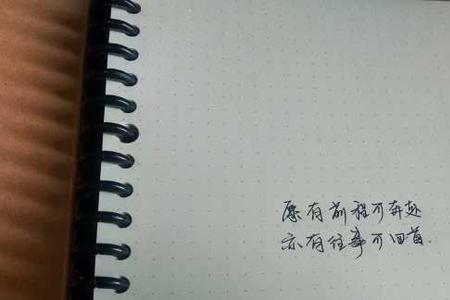 愿有前程可奔赴
亦有往事可回首.